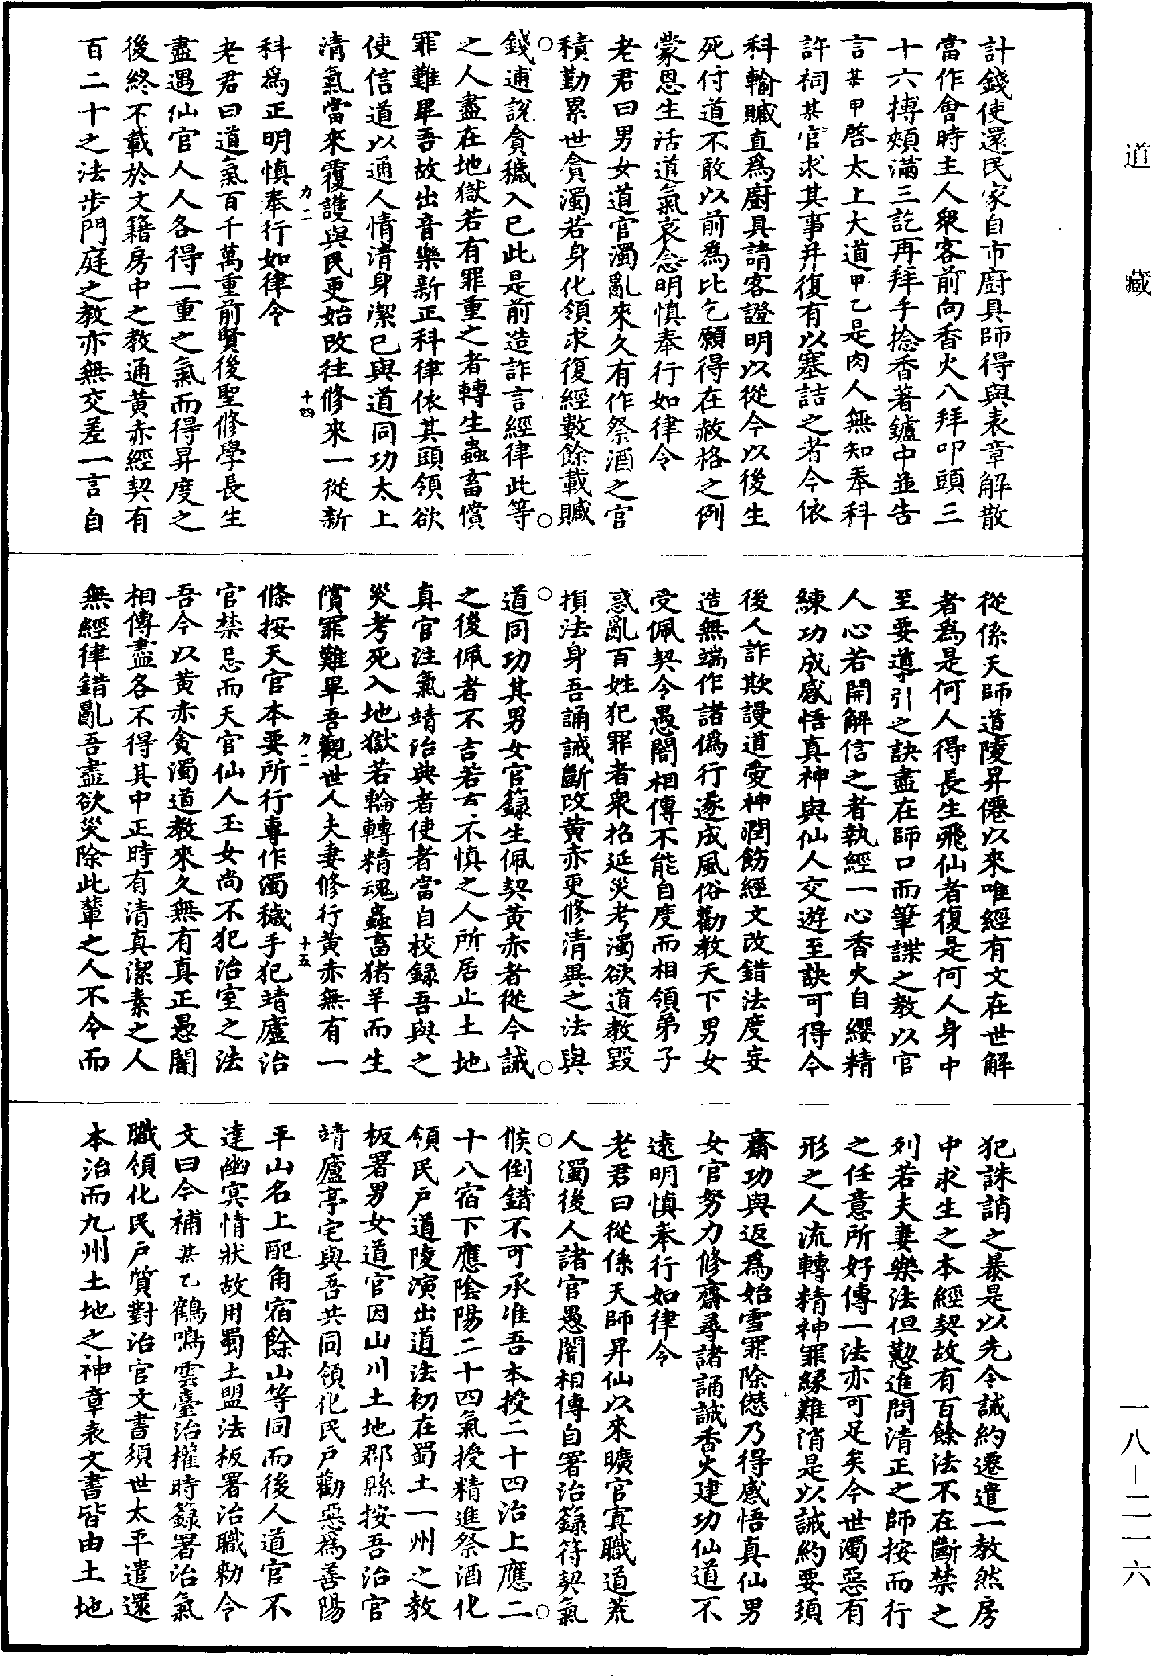 計錢使還民家自市廚具師得與表章解散
當作會時主人衆客前向香火八拜叩頭三
十六搏頰滿三訖再拜手捻香著鑪中並告
言某甲啓太上大道甲乙是肉人無知奉科
許祠某官求某事并復有以塞詰之者今依
科輸贓直爲廚具請客證明以從今以後生
死付道不敢以前爲比乞願得在赦格之例
蒙恩生活道氣哀念明慎奉行如律令
老君曰男女道官濁亂來久有作祭酒之官
積勤累世貪濁若身化領求復經數餘載贓
錢逋說貪穢入己此是前造詐言經律此等
之人盡在地獄若有罪重之者轉生蟲畜償
罪難畢吾故出音樂新正科律依其頭領欲
使信道以通人情清身潔己與道同功太上
清氣當來覆護與民更始改往修來一從新
力二 十四
科爲正明慎奉行如律令
老君曰道氣百千萬重前賢後聖修學長生
盡遇仙官人人各得一重之氣而得昇度之
後終不載於文籍房中之教通黄赤經契有
百二十之法步門庭之教亦無交差一言自
從係天師道陵昇僊以來唯經有文在世解
者爲是何人得長生飛仙者復是何人身中
至要導引之訣盡在師口而筆諜之教以官
人心若開解信之者執經一心香火自纓精
練功成感悟真神與仙人交遊至訣可得今
後人詐欺謾道愛神潤飾經文改錯法度妄
造無端作諸僞行遂成風俗勸教天下男女
受佩契令愚闇相傳不能自度而相領弟子
惑亂百姓犯罪者衆招延災考濁欲道教毀
損法身吾誦誡斷改黄赤更修清異之法與
道同功其男女官籙生佩契黄赤者從今誡
之後佩者不吉若去不慎之人所居止土地
真官注氣靖治典者使者當自校錄吾與之
災考死入地獄若輪轉精魂蟲畜猪羊而生
償罪難畢吾觀世人夫妻修行黄赤無有一
力二 十五
條按天官本要所行專作濁穢手犯靖廬治
官禁忌而天官仙人玉女尚不犯治室之法
吾今以黄赤貪濁道教來久無有真正愚闇
相傳盡各不得其中正時有清真潔素之人
無經律錯亂吾盡欲災除此輩之人不令而
犯誅誚之暴是以先令誡約遷遣一教然房
中求生之本經契故有百餘法不在斷禁之
列若夫妻樂法但懃進問清正之師按而行
之任意所好傳一法亦可足矣今世濁惡有
形之人流轉精神罪緣難消是以誡約要須
齋功與返爲始雪罪除愆乃得感悟真仙男
女官努力修齋尋諸誦誡香火建功仙道不
遠明慎奉行如律令
老君曰從係天師昇仙以來曠官寘職道荒
人濁後人諸官愚闇相傳自署治籙符契氣
候倒錯不可承准吾本授二十四治上應二
十八宿下應陰陽二十四氣授精進祭酒化
領民户道陵演出道法初在蜀土一州之教
板署男女道官因山川土地郡縣按吾治官
靖廬亭宅與吾共同領化民户勸惡爲善陽
平山名上配角宿餘山等同而後人道官不
達幽冥情狀故用蜀土盟法板署治職勑令
文曰今補某乙鶴鳴雲臺治權時籙署治氣
職領化民户質對治官文書須世太平遣還
本治而九州土地之神章表文書皆由土地
道藏
一八—二一六